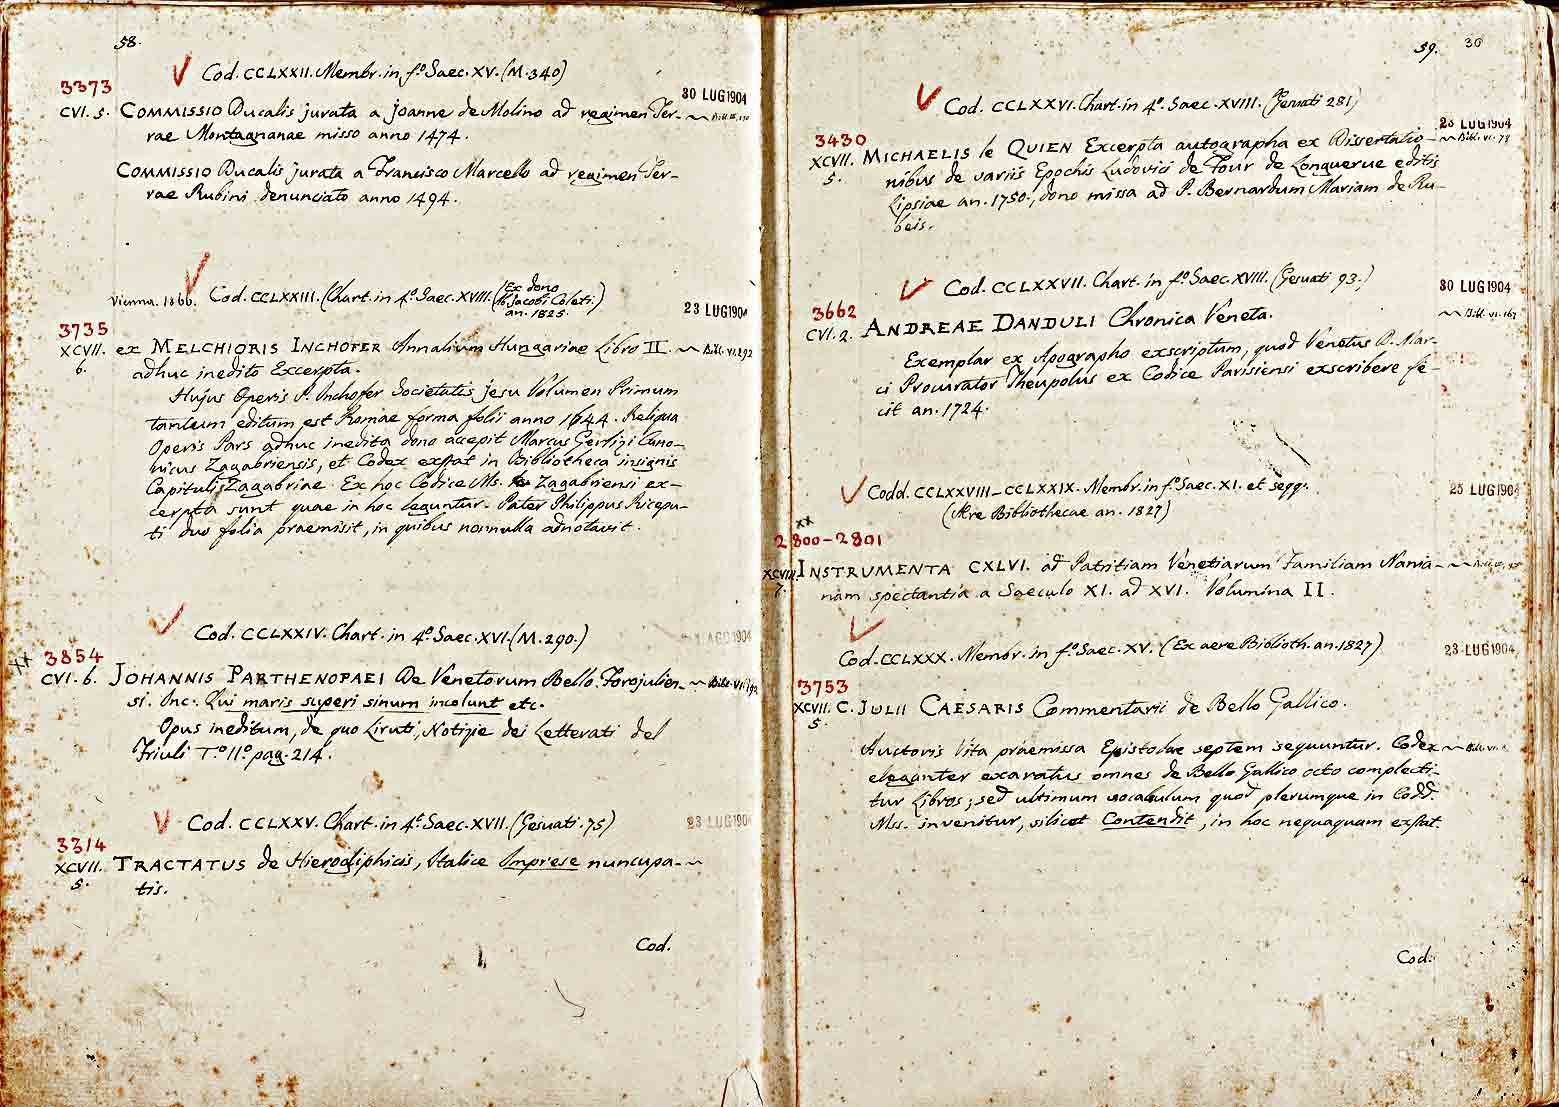 58.
Cod. CCLXXII. Membr. in fo. Saec. XV. (M. 340)
3373
30 LUG 1904
CVI. 5. COMMISSIO Ducalis jurata a Joanne de Molino ad regimen Ter-
rae Montagnanae misso anno 1474.
COMMISSIO Ducalis jurata a Francisco Marcello ad regimen Ter-
rae Rubini denunciato anno 1494.
Vienna. 1866. Cod. CCLXXIII. (Chart. in 4o. Saec. XVIII. (Ex dono
Jacobi Coleti.)
an. 1825.
23 LUG 1904
3735
XCVII. ex MELCHIORIS INCHOFER Annalium Hungariae Libro II. Bibl. VI. 292
6. adhuc inedito Excerpta.
Hujus Operis P. Inchofer Societatis Jesu Volumen Primum
tantum editum est Romae forma folii anno 1644. Reliqua
Operis Pars adhuc inedita dono accepit Marcus Gerlizi Cano-
nicus Zagabriensis, et Codex exstat in Bibliotheca insignis
Capituli Zagabriae. Ex hoc Codice Ms. Zagabriensi ex-
cerpta sunt quae in hoc leguntur. Pater Philippus Ricepu-
ti duo folia praemisit, in quibus nonnulla adnotavit.
Cod. CCLXXIV. Chart. in 4o. Saec. XVI. (M. 290.)
AGO 1904
xx 3854
CVI. 6. JOHANNIS PARTHENOPAEI De Venetorum Bello Forojulien-
si. Inc. Qui maris superi sinum incolunt etc.
Opus ineditum, de quo Liruti, Notizie dei Letterati del
Friuli To. IIo. pag. 214.
Cod. CCLXXV. Chart. in 4o. Saec. XVII. (Gesuati. 75)
23 LUG 1904
3314
XCVII. TRACTATUS de Hierogliphicis, Italice Imprese nuncupa-
5. tis.
Cod.
59. 30
Cod. CCLXXVI. Chart. in 4o. Saec. XVIII. (Gesuati 281)
23 LUG 1904
3430
XCVII. MICHAELIS le QUIEN Excerpta autographa ex Dissertatio- Bibl. VI. 79
5. nibus de variis Epochis Ludovici de Four de Longuerue editis
Lipsiae an. 1750., dono missa ad P. Bernardum Mariam de Ru-
beis.
Cod. CCLXXVII. Chart. in fo. Saec. XVIII. (Gesuati 93.)
30 LUG 1904
3662
CVI. 2. ANDREAE DANDULI Chronica Veneta. Bibl. VI. 167
Exemplar ex Apographo exscriptum, quod Venetus D. Mar-
ci Procurator Theupolus ex Codice Parisiensi exscribere fe-
cit an. 1724.
Codd. CCLXXVIII-CCLXXIX. Membr. in fo. Saec. XI. et seqq.
25 LUG 1904
(Aere Bibliothecae an. 1827)
xx
2800-2801
XCVIII. INSTRUMENTA CXLVI. ad Patritiam Venetiarum Familiam Nania-
7. nam spectantia a Saeculo XI. ad XVI. Volumina II.
Cod. CCLXXX. Membr. in fo. Saec. XV. (Ex aere Biblioth. an. 1827)
23 LUG 1904
3753
XCVII. C. JULII CAESARIS Commentarii de Bello Gallico.
5.
Auctoris Vita praemissa Epistolae septem sequuntur. Codex
eleganter exaratus omnes de Bello Gallico octo complecti-
tur Libros; sed ultimum vocabulum quod plerumque in Codd.
Mss. invenitur, silicet Contendit, in hoc nequaquam exstat.
Cod.